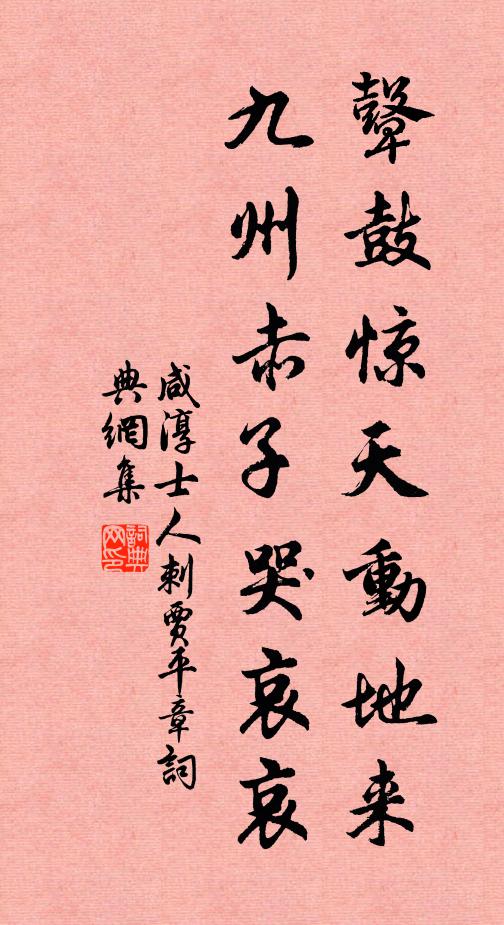 鼙鼓惊天動地来
九州赤子哭哀哀
咸淳士人刺賈平章詞
典網集
詞典網印